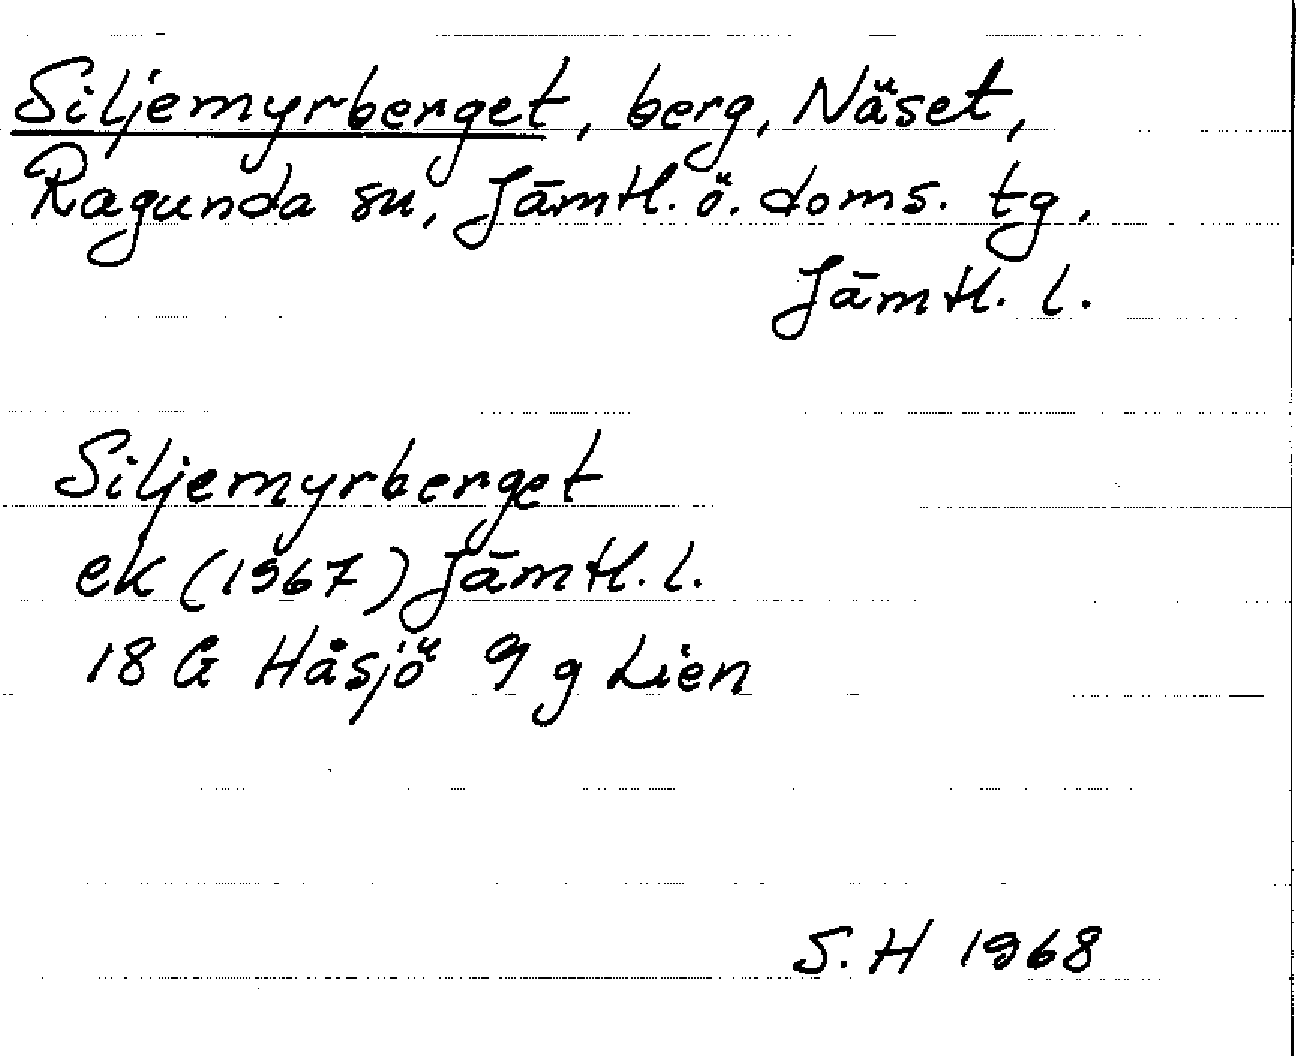 Siljemyrberget, berg, Näset,
Ragunda sn, Jämtl. ö. doms. tg,
Jämtl. l.
Siljemyrberget
ek (1967) Jämtl. l.
18 G Håsjö 9 g Lien
S. H 1968